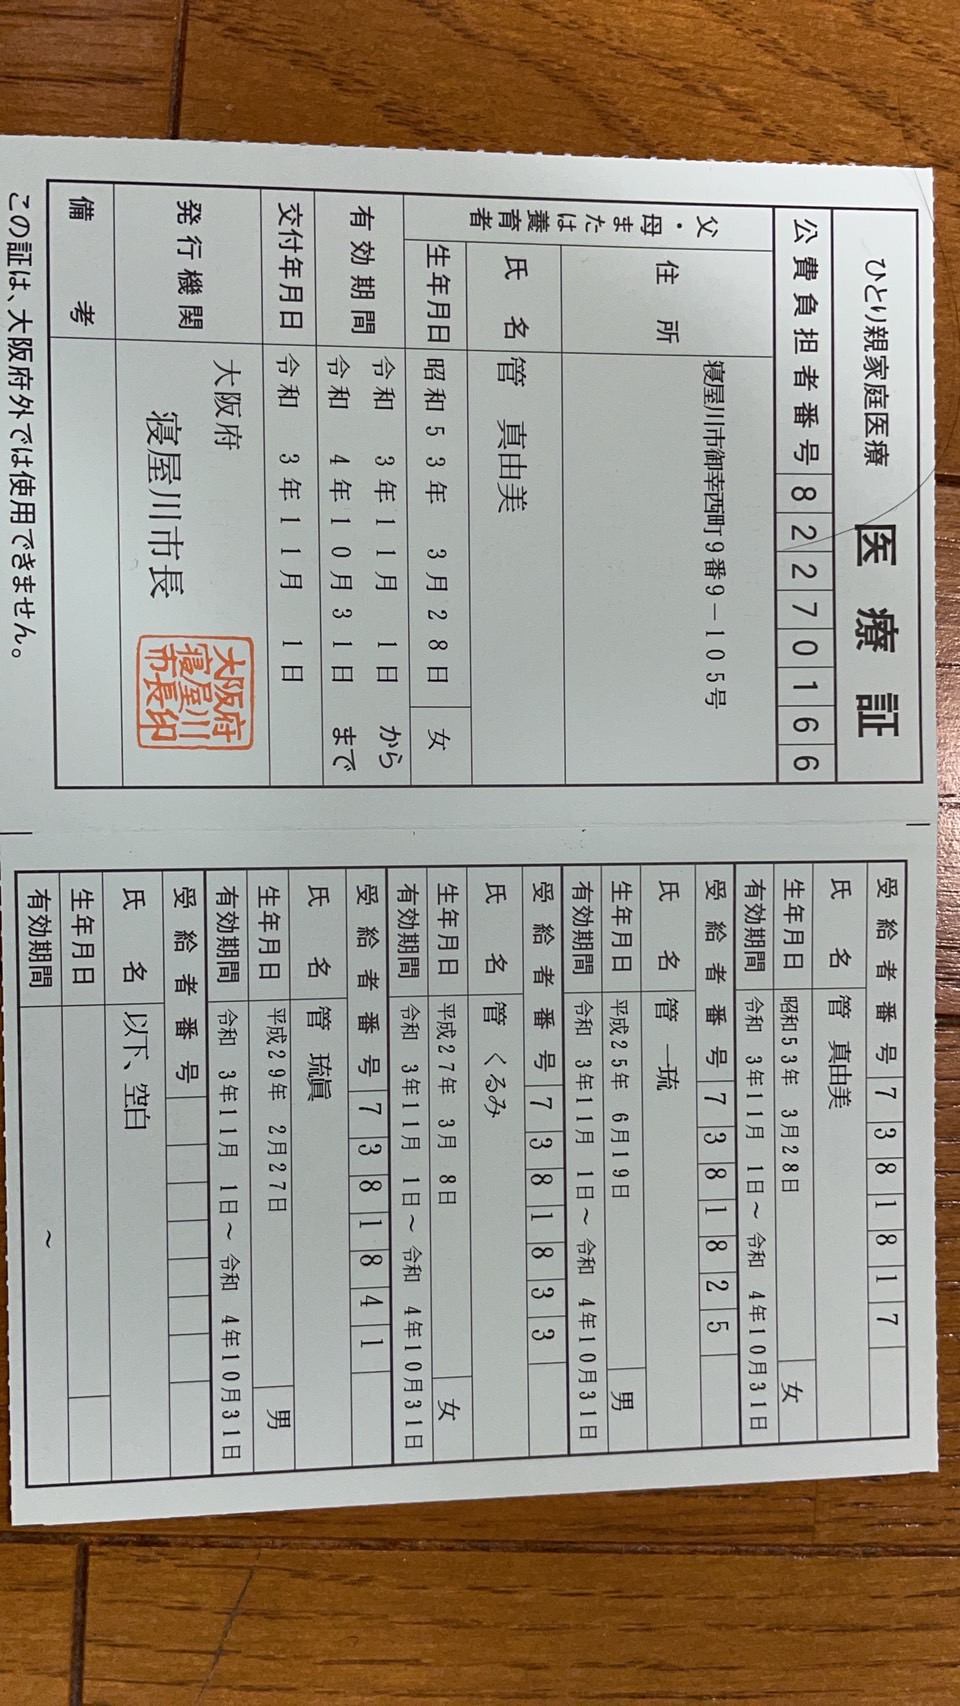 ひとり親家庭医療 医療証
公費負担者番号 82270166
父・母または養育者
住所 寝屋川市御幸西町9番9-105号
氏名 管 真由美
生年月日 昭和53年 3月28日 女
有効期間 令和 3年11月 1日から
令和 4年10月31日まで
交付年月日 令和 3年11月 1日
発行機関 大阪府
寝屋川市長
大阪府寝屋川市長印
備考
この証は、大阪府外では使用できません。
受給者番号 7381817
氏名 管 真由美
生年月日 昭和53年 3月28日 女
有効期間 令和 3年11月 1日～令和 4年10月31日
受給者番号 7381825
氏名 管 一琉
生年月日 平成25年 6月19日 男
有効期間 令和 3年11月 1日～令和 4年10月31日
受給者番号 7381833
氏名 管 くるみ
生年月日 平成27年 3月 8日 女
有効期間 令和 3年11月 1日～令和 4年10月31日
受給者番号 7381841
氏名 管 琉眞
生年月日 平成29年 2月27日 男
有効期間 令和 3年11月 1日～令和 4年10月31日
受給者番号
氏名 以下、空白
生年月日
有効期間 ～